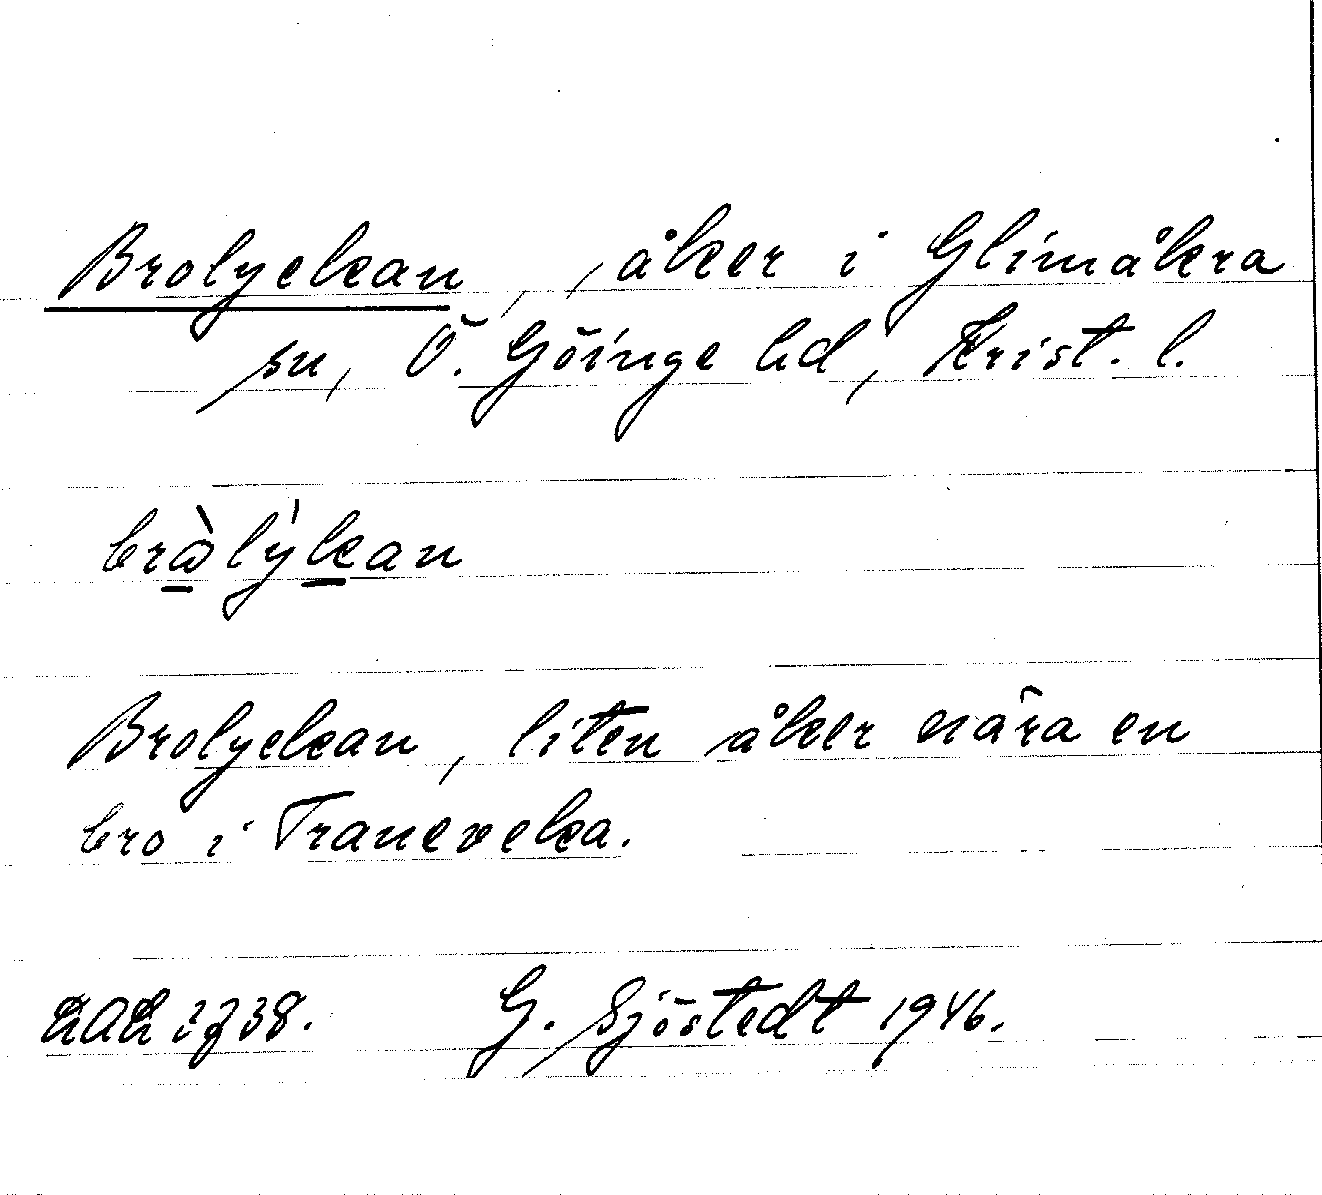 Brolyckan, , åker i Glimåkra
sn, Ö. Göinge hd, Krist. l.
bràlỳkan
Brolyckan, liten åker nära en
bro i Traneveka.
G. Sjöstedt 1946.